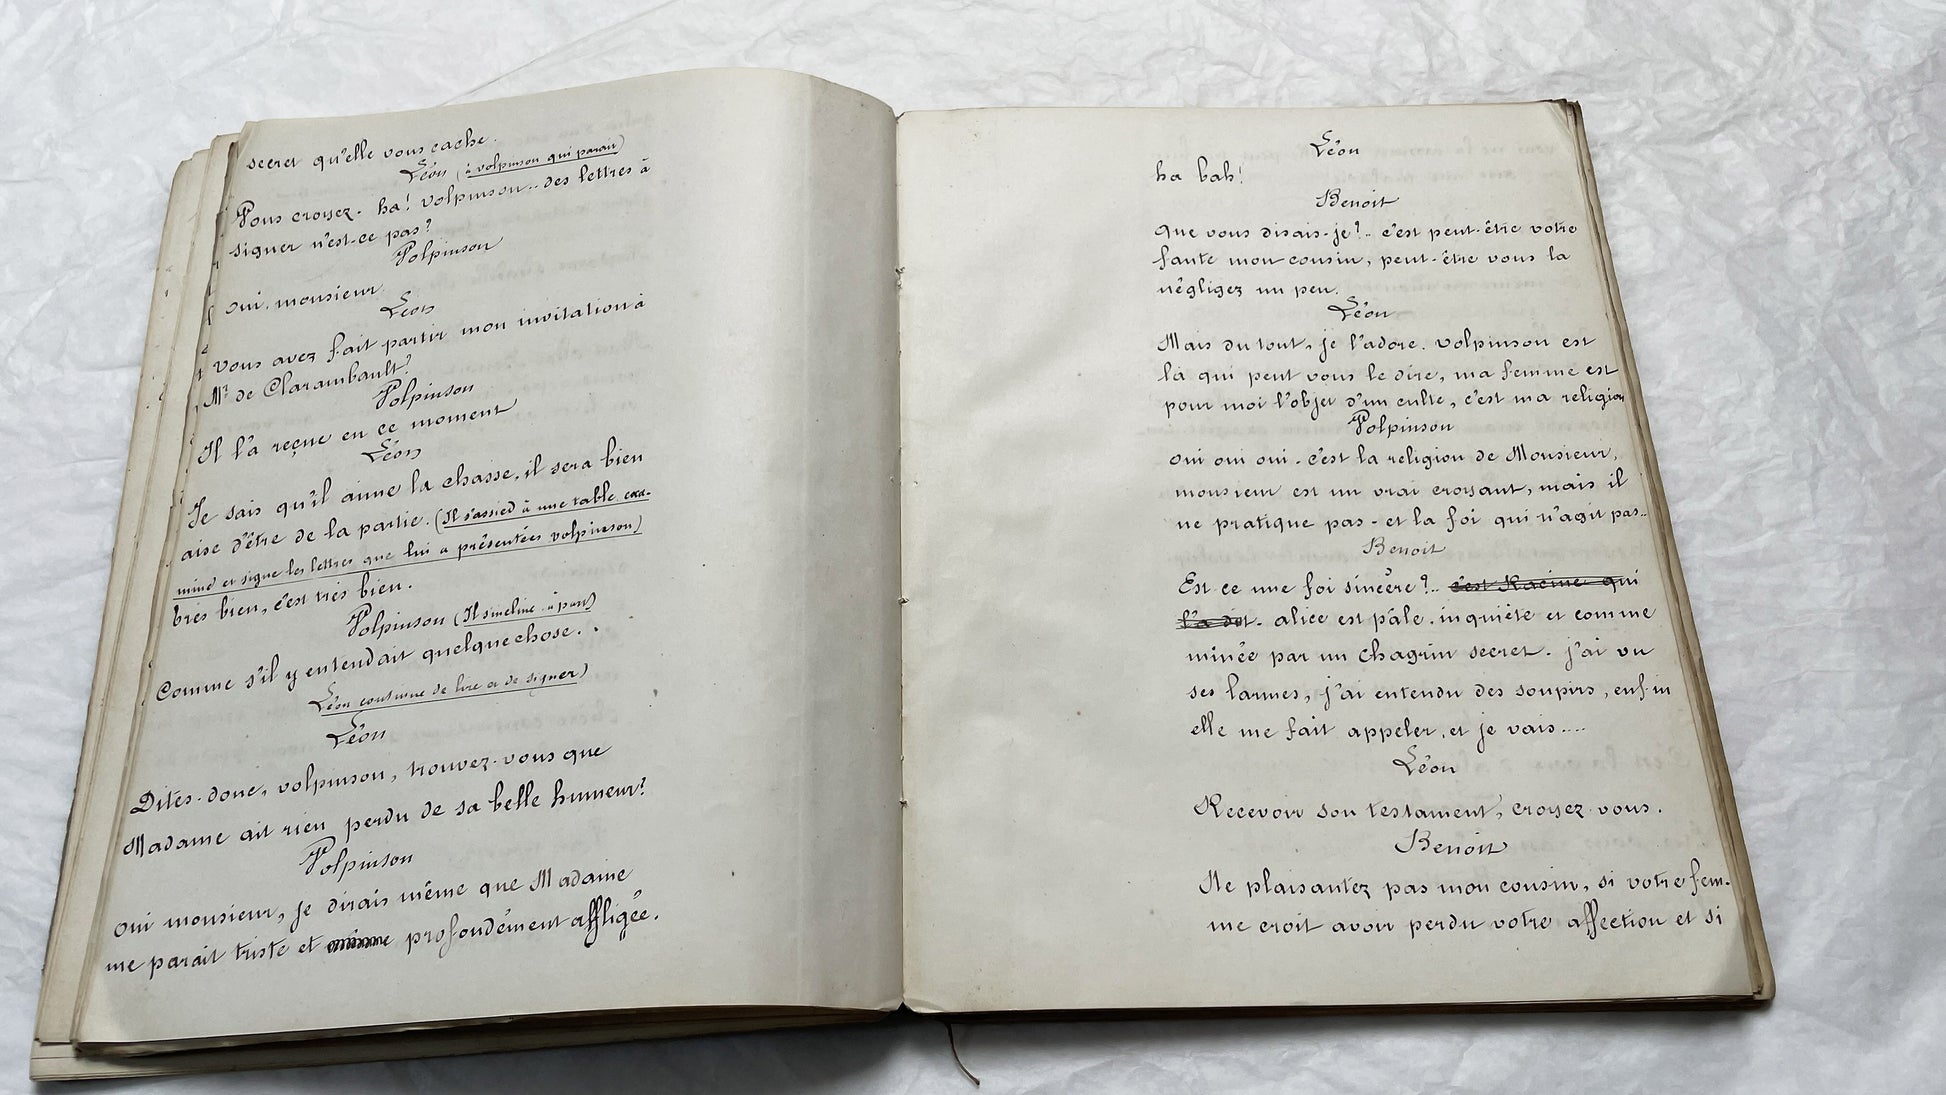 secret qu'elle vous cache.
Léon (à volpinson qui parait)
Vous croyez. ha! volpinson.. des lettres à
signer n'est-ce pas?
Volpinson
oui, monsieur.
Léon
vous avez fait partir mon invitation à
Mr de Clarambault?
Volpinson
Il l'a reçue en ce moment
Léon
Je sais qu'il aime la chasse, il sera bien
aise d'être de la partie. (Il s'assied à une table exa-
mine et signe les lettres que lui a présentées volpinson)
très bien, c'est très bien.
Volpinson (Il s'incline à part)
Comme s'il y entendait quelque chose..
Léon continue de lire et de signer)
Léon
Dites-donc, volpinson, trouvez-vous que
Madame ait rien perdu de sa belle humeur?
Volpinson
oui monsieur, je dirais même que Madame
me parait triste et profondément affligée.
Léon
ha bah!
Benoit
que vous disais-je?.. c'est peut-être votre
faute mon cousin, peut-être vous la
négligez un peu.
Léon
Mais du tout, je l'adore. volpinson est
là qui peut vous le dire, ma femme est
pour moi l'objet d'un culte, c'est ma religion
Volpinson
oui oui oui - c'est la religion de Monsieur,
monsieur est un vrai croyant, mais il
ne pratique pas - et la foi qui n'agit pas..
Benoit
Est ce une foi sincère?.. c'est Racine qui
l'a dit. alice est pâle, inquiète et comme
minée par un chagrin secret. j'ai vu
ses larmes, j'ai entendu des soupirs, enfin
elle me fait appeler, et je vais....
Léon
Recevoir son testament, croyez-vous.
Benoit
Ne plaisantez pas mon cousin, si votre fem-
me croit avoir perdu votre affection et si